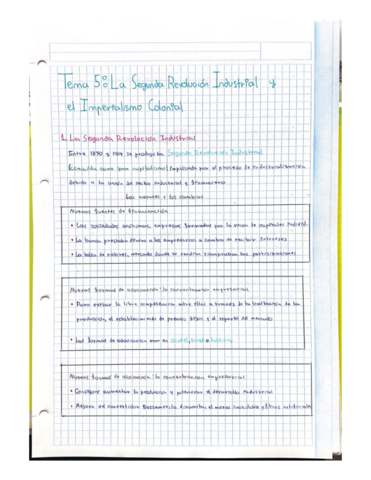 Tema 5º: La Segunda Revolución Industrial y
el Imperialismo Colonial
1. La Segunda Revolución Industrial
Entre 1870 y 1914 se produjo la Segunda Revolución Industrial
como gran capitalismo impulsado por el proceso de industrialización
debido a la unión de sector industrial y financiero
Las y los cambios
Nuevas fuentes de financiación
• Las sociedades anónimas, empresas formadas por la unión de capitales
• La banca prestaba dinero a los empresarios a cambio de recibir intereses
• La bolsa de valores, mercado donde se vendían y compraban las participaciones
Nuevas formas de asociación: la concentración empresarial
• Para evitar la libre competencia entre ellas a través de la limitación de la
producción, el establecimiento de precios fijos y el reparto del mercado
• Las formas de asociación son la cártel, trust o holding
Nuevas formas de asociación: la concentración empresarial
• Consiguió aumentar la producción y potenciar el desarrollo industrial
• Mejora del convertidor Bessemer, la dinamita, el acero inoxidable y otros